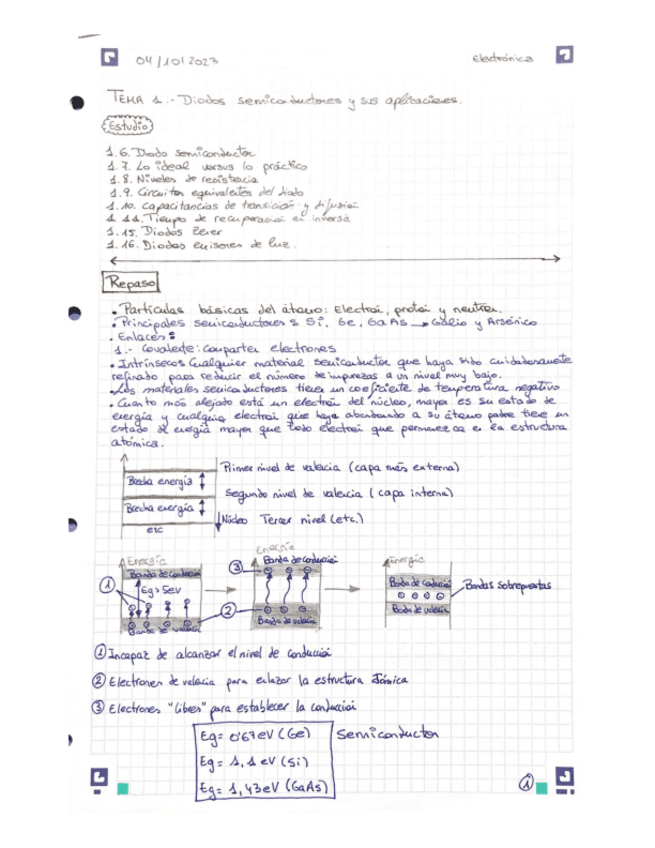 04/10/2023
Electrónica
TEMA 1.- Diodos semiconductores y sus aplicaciones.
Estudio
1.6. Diodo semiconductor
1.7. Lo ideal versus lo práctico
1.8. Niveles de resistencia
1.9. Circuitos equivalentes del diodo
1.10. Capacitancias de transición y difusión
1.11. Tiempo de recuperación en inversa
1.15. Diodos Zener
1.16. Diodos emisores de luz.
Repaso
• Partículas básicas del átomo: Electrón, protón y neutrón.
• Principales semiconductores: Si, Ge, GaAs → Galio y Arsénico
• Enlaces:
1.- Covalente: Comparten electrones
• Intrínsecos Cualquier material semiconductor que haya sido cuidadosamente
refinado para reducir el número de impurezas a un nivel muy bajo.
• Los materiales semiconductores tienen un coeficiente de temperatura negativo
• Cuanto más alejado está un electrón del núcleo, mayor es su estado de
energía y cualquier electrón que haya abandonado a su átomo padre tiene un
estado de energía mayor que todo electrón que permanezca en la estructura
atómica.
Primer nivel de valencia (capa más externa)
Brecha energía
Segundo nivel de valencia (capa interna)
Brecha energía
Núcleo Tercer nivel (etc.)
etc
Energía
Banda de conducción
Eg > 5eV
Banda de valencia
1
Energía
Banda de conducción
3
2
Banda de valencia
Energía
Banda de conducción
Banda de valencia
Bandas sobrepuestas
1 Incapaz de alcanzar el nivel de conducción
2 Electrones de valencia para enlazar la estructura atómica
3 Electrones "libres" para establecer la conducción
Eg = 0'67eV (Ge)
Semiconductor
Eg = 1,1 eV (Si)
Eg = 1,43eV (GaAs)
1